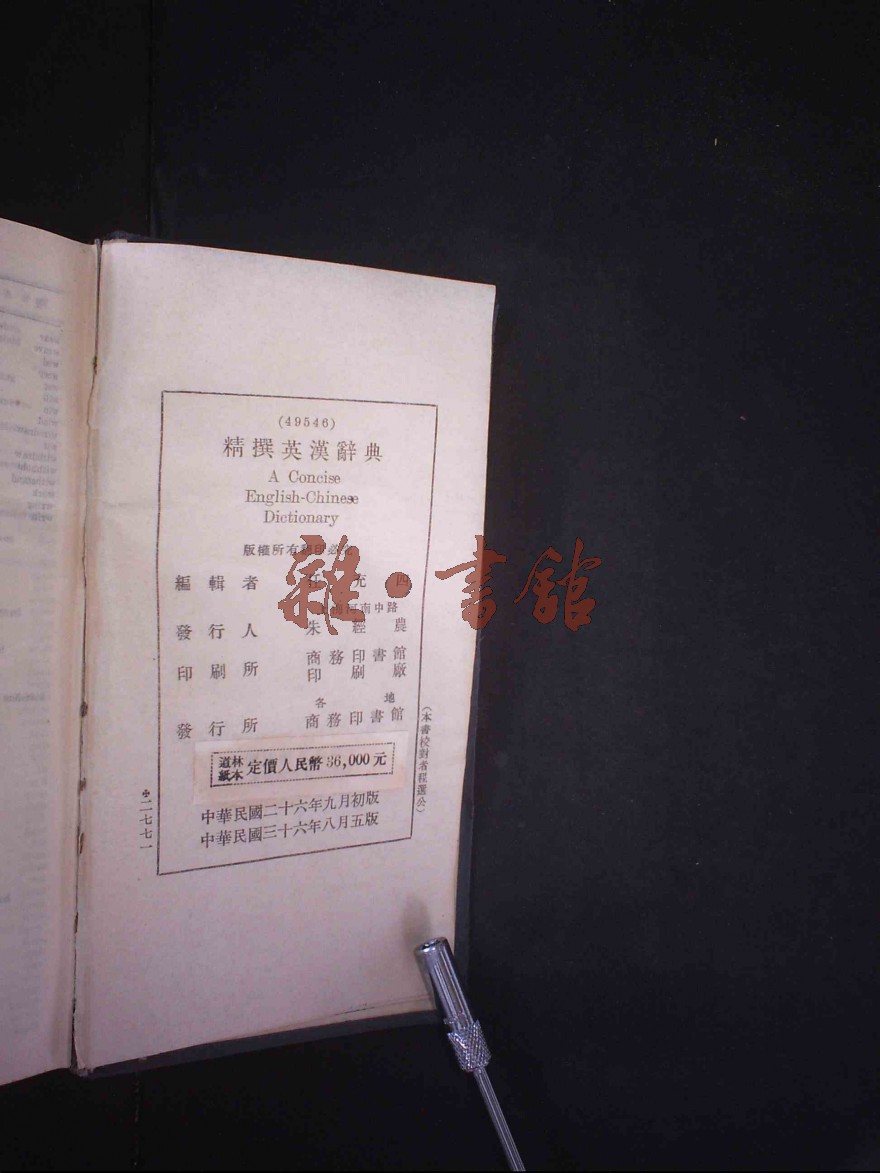 (49546)
精撰英漢辭典
A Concise
English-Chinese
Dictionary
版權所有翻印必究
編輯者 任充四
河南中路
發行人 朱經農
印刷所 商務印書館
印刷廠
各地
發行所 商務印書館
道林
紙本 定價人民幣36,000元
中華民國二十六年九月初版
中華民國三十六年八月五版
(本書校對者程選公)
✠二七七一
雜·書館